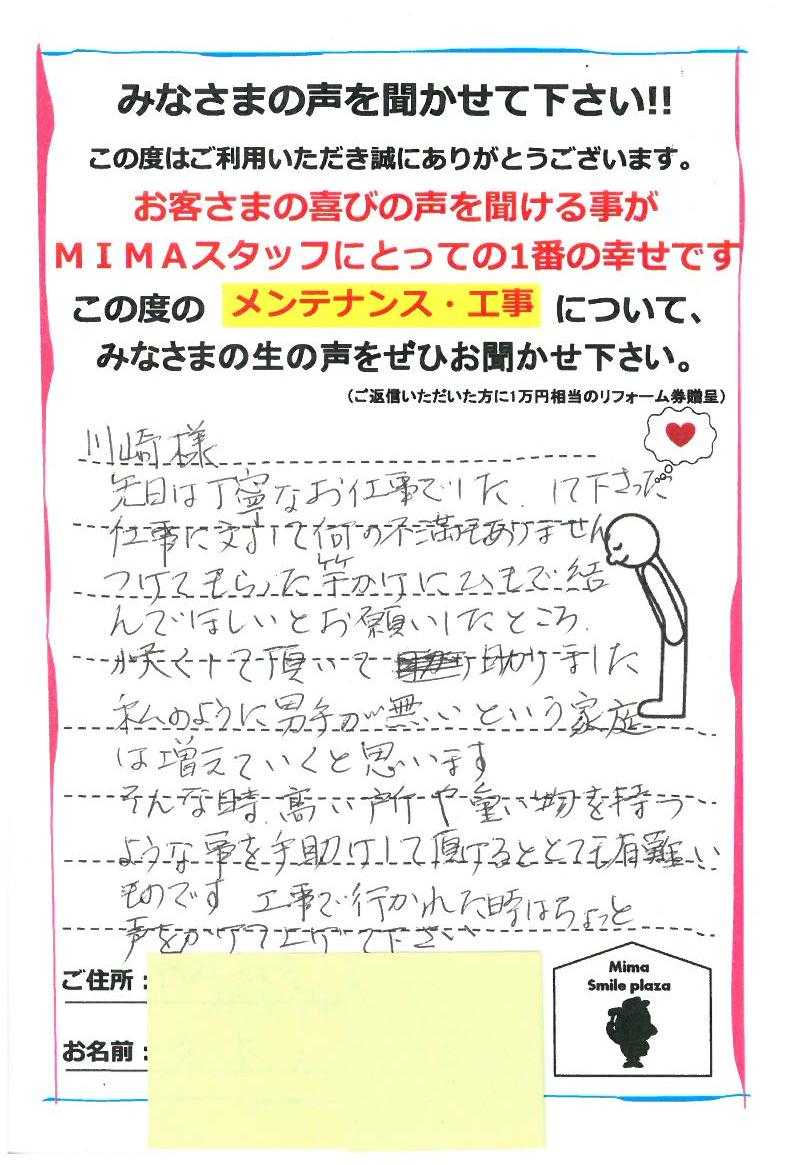 みなさまの声を聞かせて下さい!!
この度はご利用いただき誠にありがとうございます。
お客さまの喜びの声を聞ける事が
MIMAスタッフにとっての1番の幸せです
この度の メンテナンス・工事 について、
みなさまの生の声をぜひお聞かせ下さい。
(ご返信いただいた方に1万円相当のリフォーム券贈呈)
川崎様
先日は丁寧なお仕事でした。して下さった
仕事に対して何の不満もありません
つけてもらった竿かけにひもで結
んでほしいとお願いしたところ、
快くして頂いて助かりました
私のように男手が無いという家庭
は増えていくと思います
そんな時、高い所や重い物を持つ
ような事を手助けして頂けるととても有難い
ものです 工事で行かれた時はちょっと
声をかけて上げて下さい
ご住所:
お名前:
Mima
Smile plaza